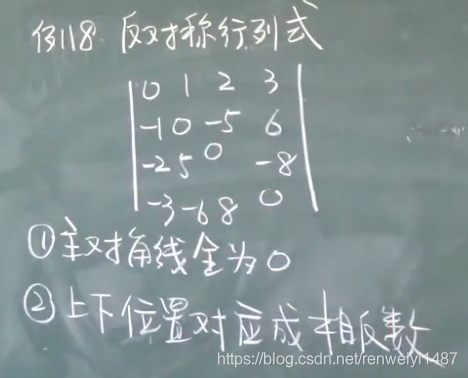 例118 反对称行列式
0 1 2 3
-1 0 -5 6
-2 5 0 -8
-3 -6 8 0
①主对角线全为0
②上下位置对应成相反数
https://blog.csdn.net/renweiyi1487